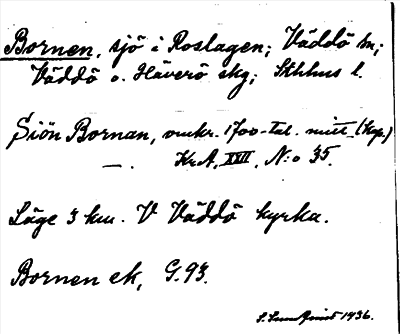 Bornen, sjö i Roslagen; Väddö sn;
Väddö o. Häverö skg; Sthlms l.
Siön Bornan, omkr. 1700-tal. mitt. (kop.)
—. KrA, XXII, N:o 35.
Läge 3 km. V Väddö kyrka.
Bornen ek, G.93.
1936.